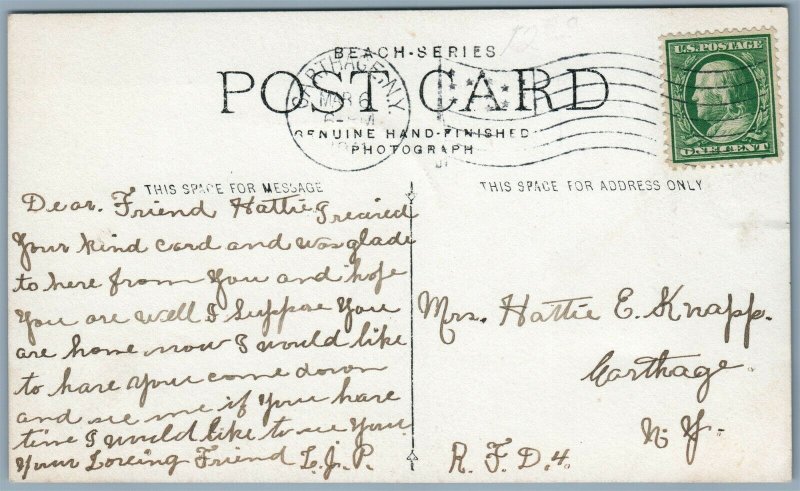 BEACH-SERIES
POST CARD
GENUINE HAND-FINISHED
PHOTOGRAPH
CARTHAGE, N.Y.
MAR 6
U.S. POSTAGE
ONE CENT
THIS SPACE FOR MESSAGE
THIS SPACE FOR ADDRESS ONLY
Dear. Friend Hattie I recived
Your kind card and was glade
to here from You and hope
You are well I Suppose You
are home now I would like
to hare you come down
and see me if you hare
time I would like to see You.
Your Loreing Friend L.J.P.
Mrs. Hattie E. Knapp.
Carthage
N. Y.
R. F. D. 4.